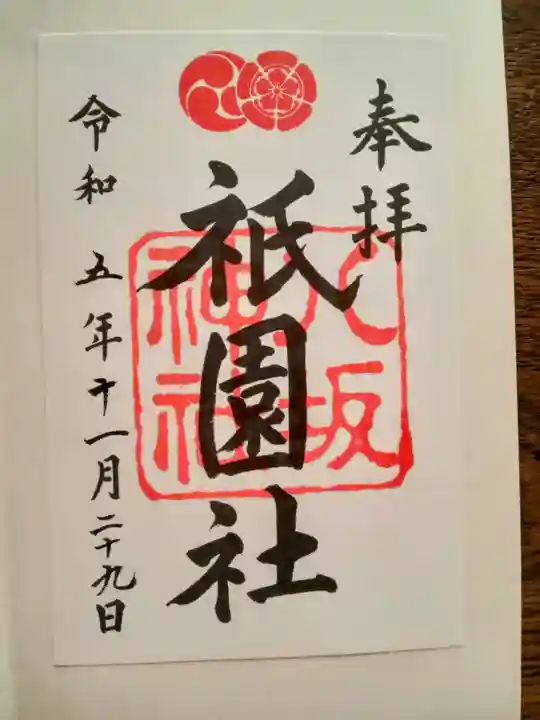 奉拝
祇園社
八坂
神社
令和 五年十一月二十九日